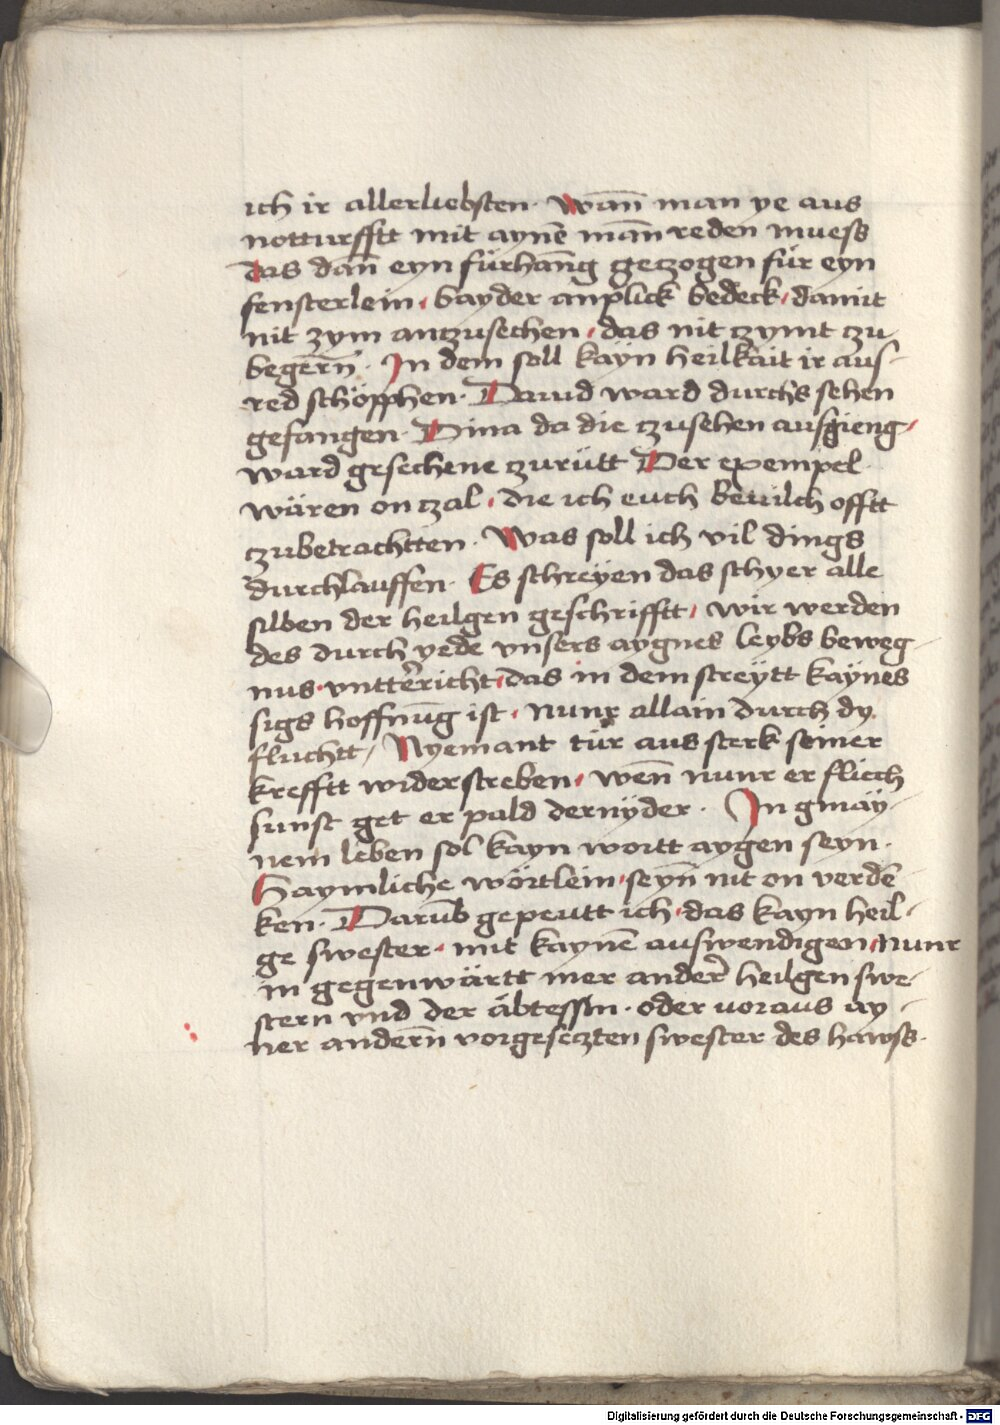 ich ir allerliebsten · Wan̄ man ye aus
notturfftt mit aynē man̄ reden muess
das dan̄ eyn fürhāng geczogen für eyn
fensterlein · bayder anplick bedeck · damit
nit zym anzusechen · das nit czymt czu
begern̄ · In dem soll kayn heilkait ir aus-
red schöpphen · Dauid ward durchs sehen
gefangen · Dina da die czusehen ausgieng ·
ward geschene zurütt Der exempel
wären on czal · die ich euch beuilch offtt
czubetrachtten · Was soll ich vil dings
durchlauffen · Es schreyen das schyer alle
silben der heilgen geschrifftt · wir werden
des durch yede vnsers aygnes leybs beweg-
nus · vntterricht · das in dem streytt kaynes
sigs hoffnūg ist · nunr allain durch dy
fluchtt / Nyemant tür aus sterk seiner
krefftt widerstreben · wen̄ nunr er fliech
sunst get er pald dernyder · In gmäy-
nem leben sol kayn wortt aygen seyn ·
Haymliche wörtlein · seyn̄ nit on verdē-
ken · Darūb gepeutt ich · das kayn heil-
ge swester · mit kaynē auswendigen · nunr
in gegenwärtt mer ander heilgen swe-
stern vnd der äbtessin · oder voraus ay-
ner andern̄ vorgesezten swester des hawss ·
Digitalisierung gefördert durch die Deutsche Forschungsgemeinschaft - DFG